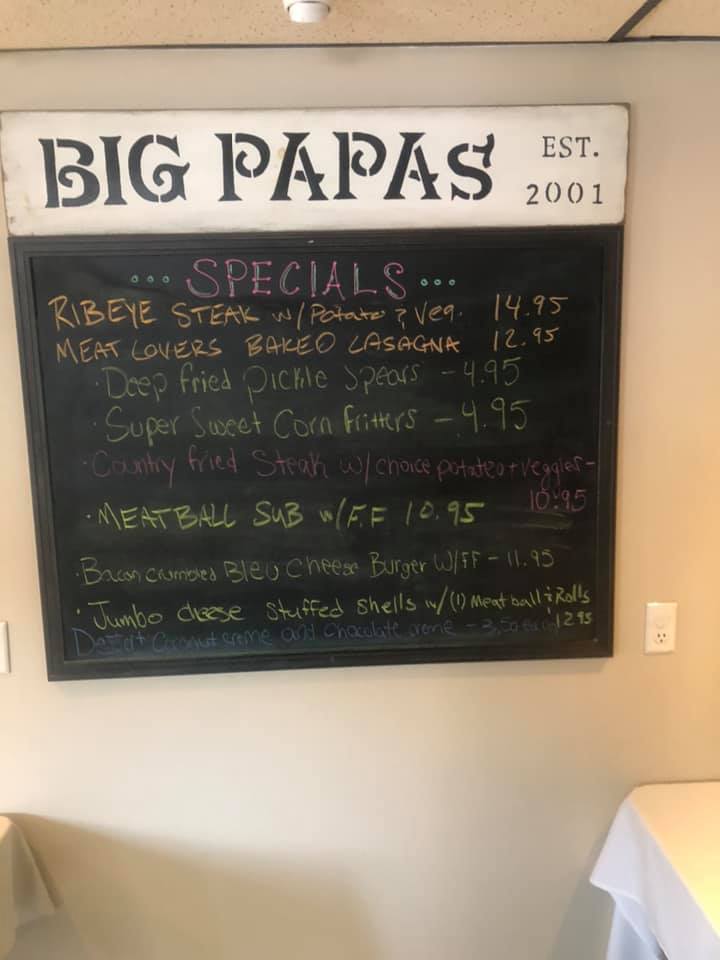 BIG PAPAS EST. 2001
... SPECIALS ...
RIBEYE STEAK w/ Potato & Veg. 14.95
MEAT LOVERS BAKED LASAGNA 12.95
· Deep fried pickle Spears - 4.95
· Super Sweet Corn fritters - 4.95
· Country fried Steak w/ choice potato + veggies -
10.95
· MEATBALL SUB w/ F.F 10.95
· Bacon crumbled Bleu Cheese Burger W/FF - 11.95
· Jumbo cheese Stuffed Shells w/ (1) Meatball & Rolls
12.95
Coconut creme and Chocolate creme - 3.50